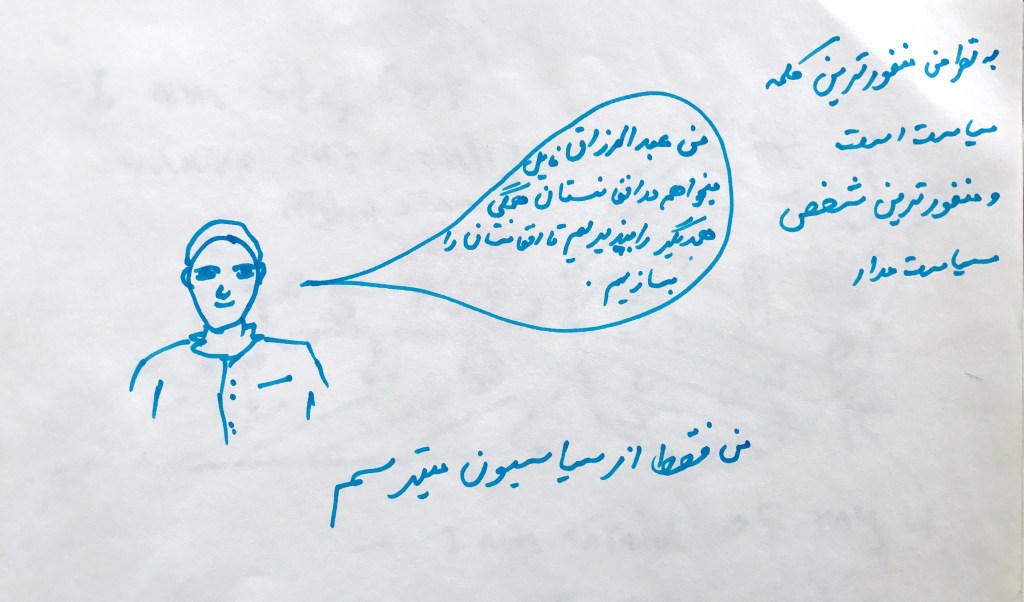 به نظر من منفورترین کلمه
سیاست است
و منفورترین شخص
سیاست مدار
من عبدالرزاق مایل
میخواهم در افغانستان همگی
همدیگر را بپذیریم تا افغانستان را
بسازیم.
من فقط از سیاسیون میترسم